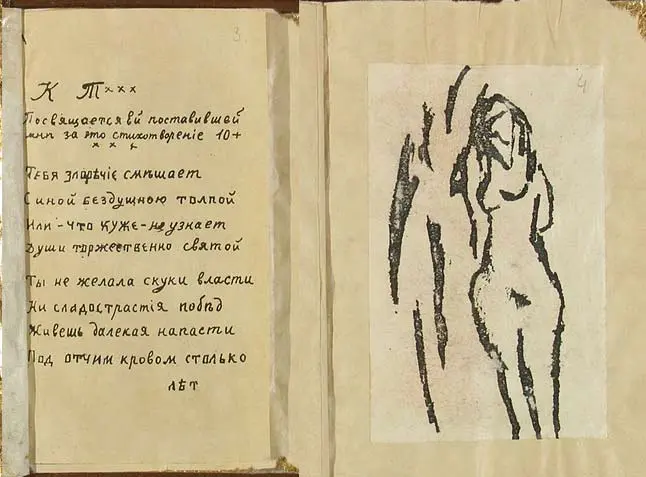 3.
К Т***
Посвящается ей поставившей
мнѣ за это стихотвореніе 10+
* * *
Тебя злорѣчіе смѣшает
С иной бездушною толпой
Или - что хуже - не узнает
Души торжественно святой
Ты не желала скуки власти
Ни сладострастія побѣд
Живешь далекая напасти
Под отчим кровом столько
лѣт
4